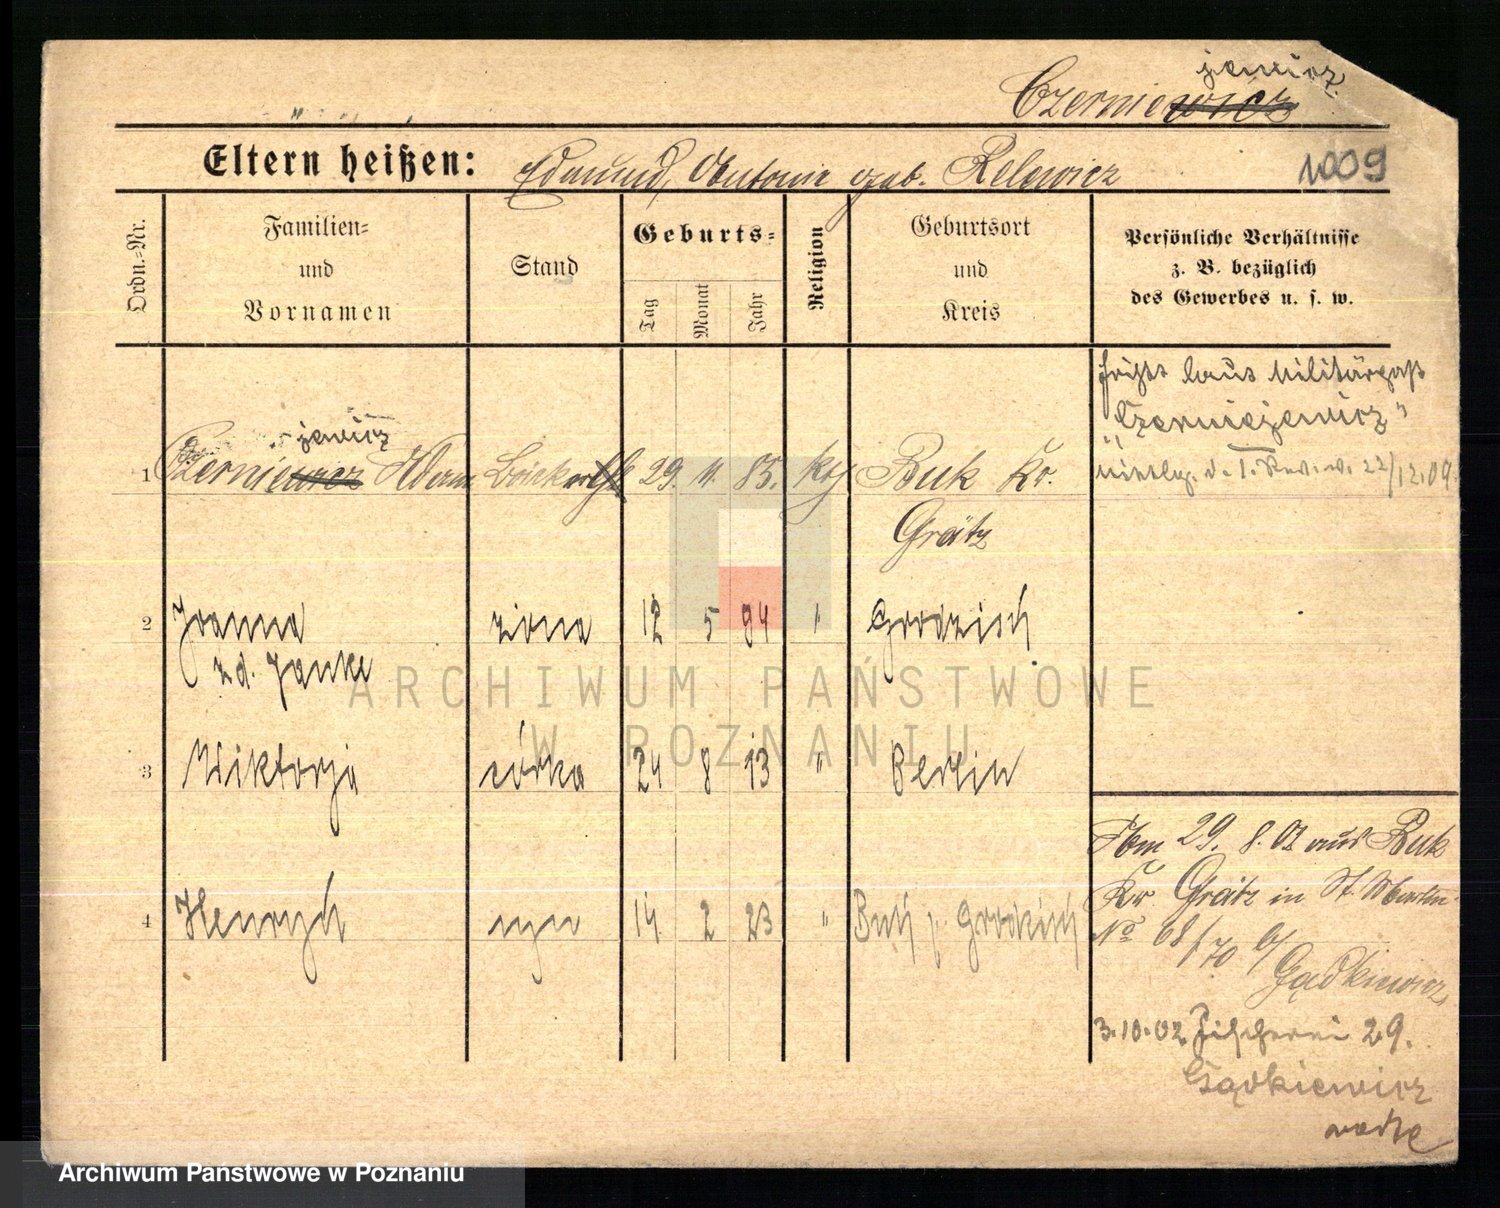 jewicz.
Czerniewicz
Eltern heißen: Edmund, Antonie geb. Relewicz 1009
Ordn.-Nr.
Familien-
und
Vornamen
Stand
Geburts-
Tag
Monat
Jahr
Religion
Geburtsort
und
Kreis
Persönliche Verhältnisse
z. B. bezüglich
des Gewerbes u. s. w.
heißt laut Militärpaß
"Czerniejewicz"
22/12.09.
jewicz
1 Czerniewicz Adam 29. 11. 85. kaj Buk Kr.
Grätz
2 Joanna żona 12 5 94 " Grodzisk
z d. Janke
3 Wiktorja córka 24 8 13 " Berlin
4 Henryk syn 14 2 23 " Buk p. Grodzisk
29. 8. 02 aus Buk
Kr. Grätz in St. Martin
No 68/70 b/
Gądkiewicz,
3.10.02 Fischerei 29.
Gądkiewicz
ARCHIWUM PAŃSTWOWE
W POZNANIU
Archiwum Państwowe w Poznaniu